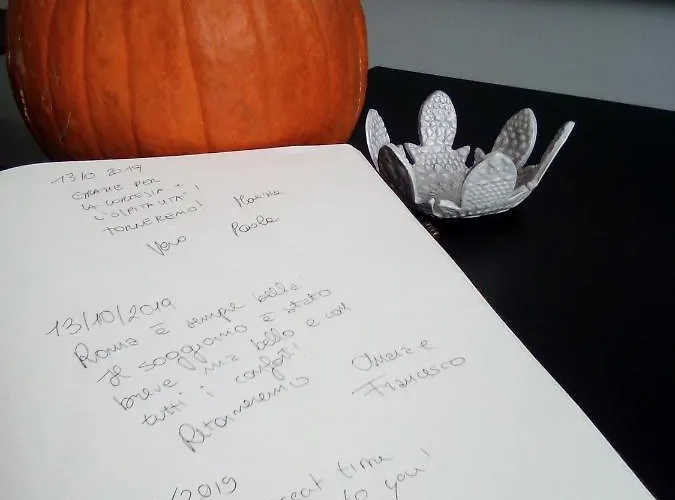 13/10 2019
GRAZIE PER
LA CORTESIA e
L'OSPITALITÀ!
TORNEREMO!
Vero Paola
13/10/2019
Roma è sempre bella!
Il soggiorno è stato
breve ma bello e con
tutti i confort!
Ritorneremo
Francesco
/2019
great time
to you!